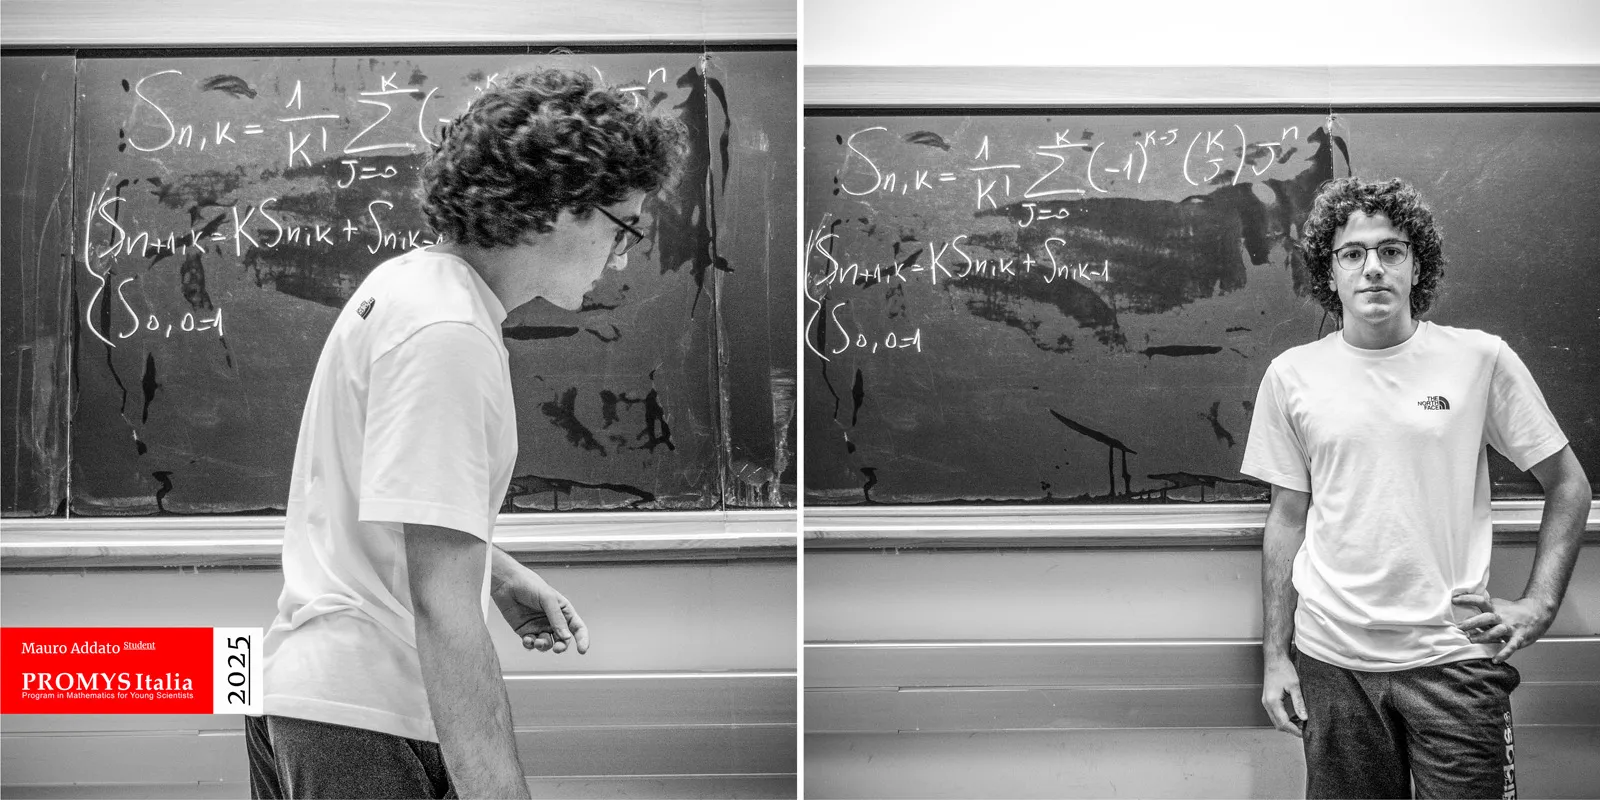 S_{n,k} = \frac{1}{K!} \sum_{J=0}^{K} (-
J^n
S_{n+1,k} = K S_{n,k} + S_{n,k-1}
S_{0,0}=1
Mauro Addato Student
PROMYS Italia
Program in Mathematics for Young Scientists
2025
S_{n,k} = \frac{1}{K!} \sum_{J=0}^{K} (-1)^{K-J} \binom{K}{J} J^n
S_{n+1,k} = K S_{n,k} + S_{n,k-1}
S_{0,0}=1
THE
NORTH
FACE
adidas